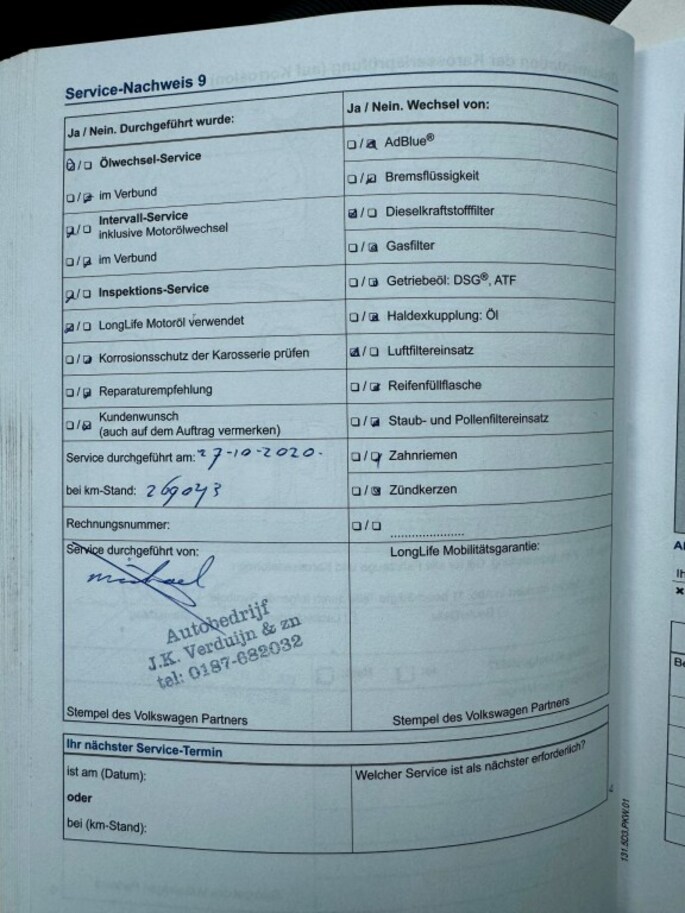 Service-Nachweis 9
Ja / Nein. Durchgeführt wurde:
☑/☐ Ölwechsel-Service
☐/☑ im Verbund
☑/☐ Intervall-Service
inklusive Motorölwechsel
☐/☑ im Verbund
☑/☐ Inspektions-Service
☑/☐ LongLife Motoröl verwendet
☐/☑ Korrosionsschutz der Karosserie prüfen
☐/☑ Reparaturempfehlung
☐/☑ Kundenwunsch
(auch auf dem Auftrag vermerken)
Service durchgeführt am: 27-10-2020.
bei km-Stand: 269043
Rechnungsnummer:
Service durchgeführt von:
michael
Autobedrijf
J.K. Verduijn & zn
tel: 0187-682032
Stempel des Volkswagen Partners
Ja / Nein. Wechsel von:
☐/☑ AdBlue®
☐/☑ Bremsflüssigkeit
☑/☐ Dieselkraftstofffilter
☐/☑ Gasfilter
☐/☑ Getriebeöl: DSG®, ATF
☐/☑ Haldexkupplung: Öl
☑/☐ Luftfiltereinsatz
☐/☑ Reifenfüllflasche
☐/☑ Staub- und Pollenfiltereinsatz
☐/☑ Zahnriemen
☐/☑ Zündkerzen
☐/☐ ......................
LongLife Mobilitätsgarantie:
Stempel des Volkswagen Partners
Ihr nächster Service-Termin
ist am (Datum):
oder
bei (km-Stand):
Welcher Service ist als nächster erforderlich?
131.5D3.PKW.01